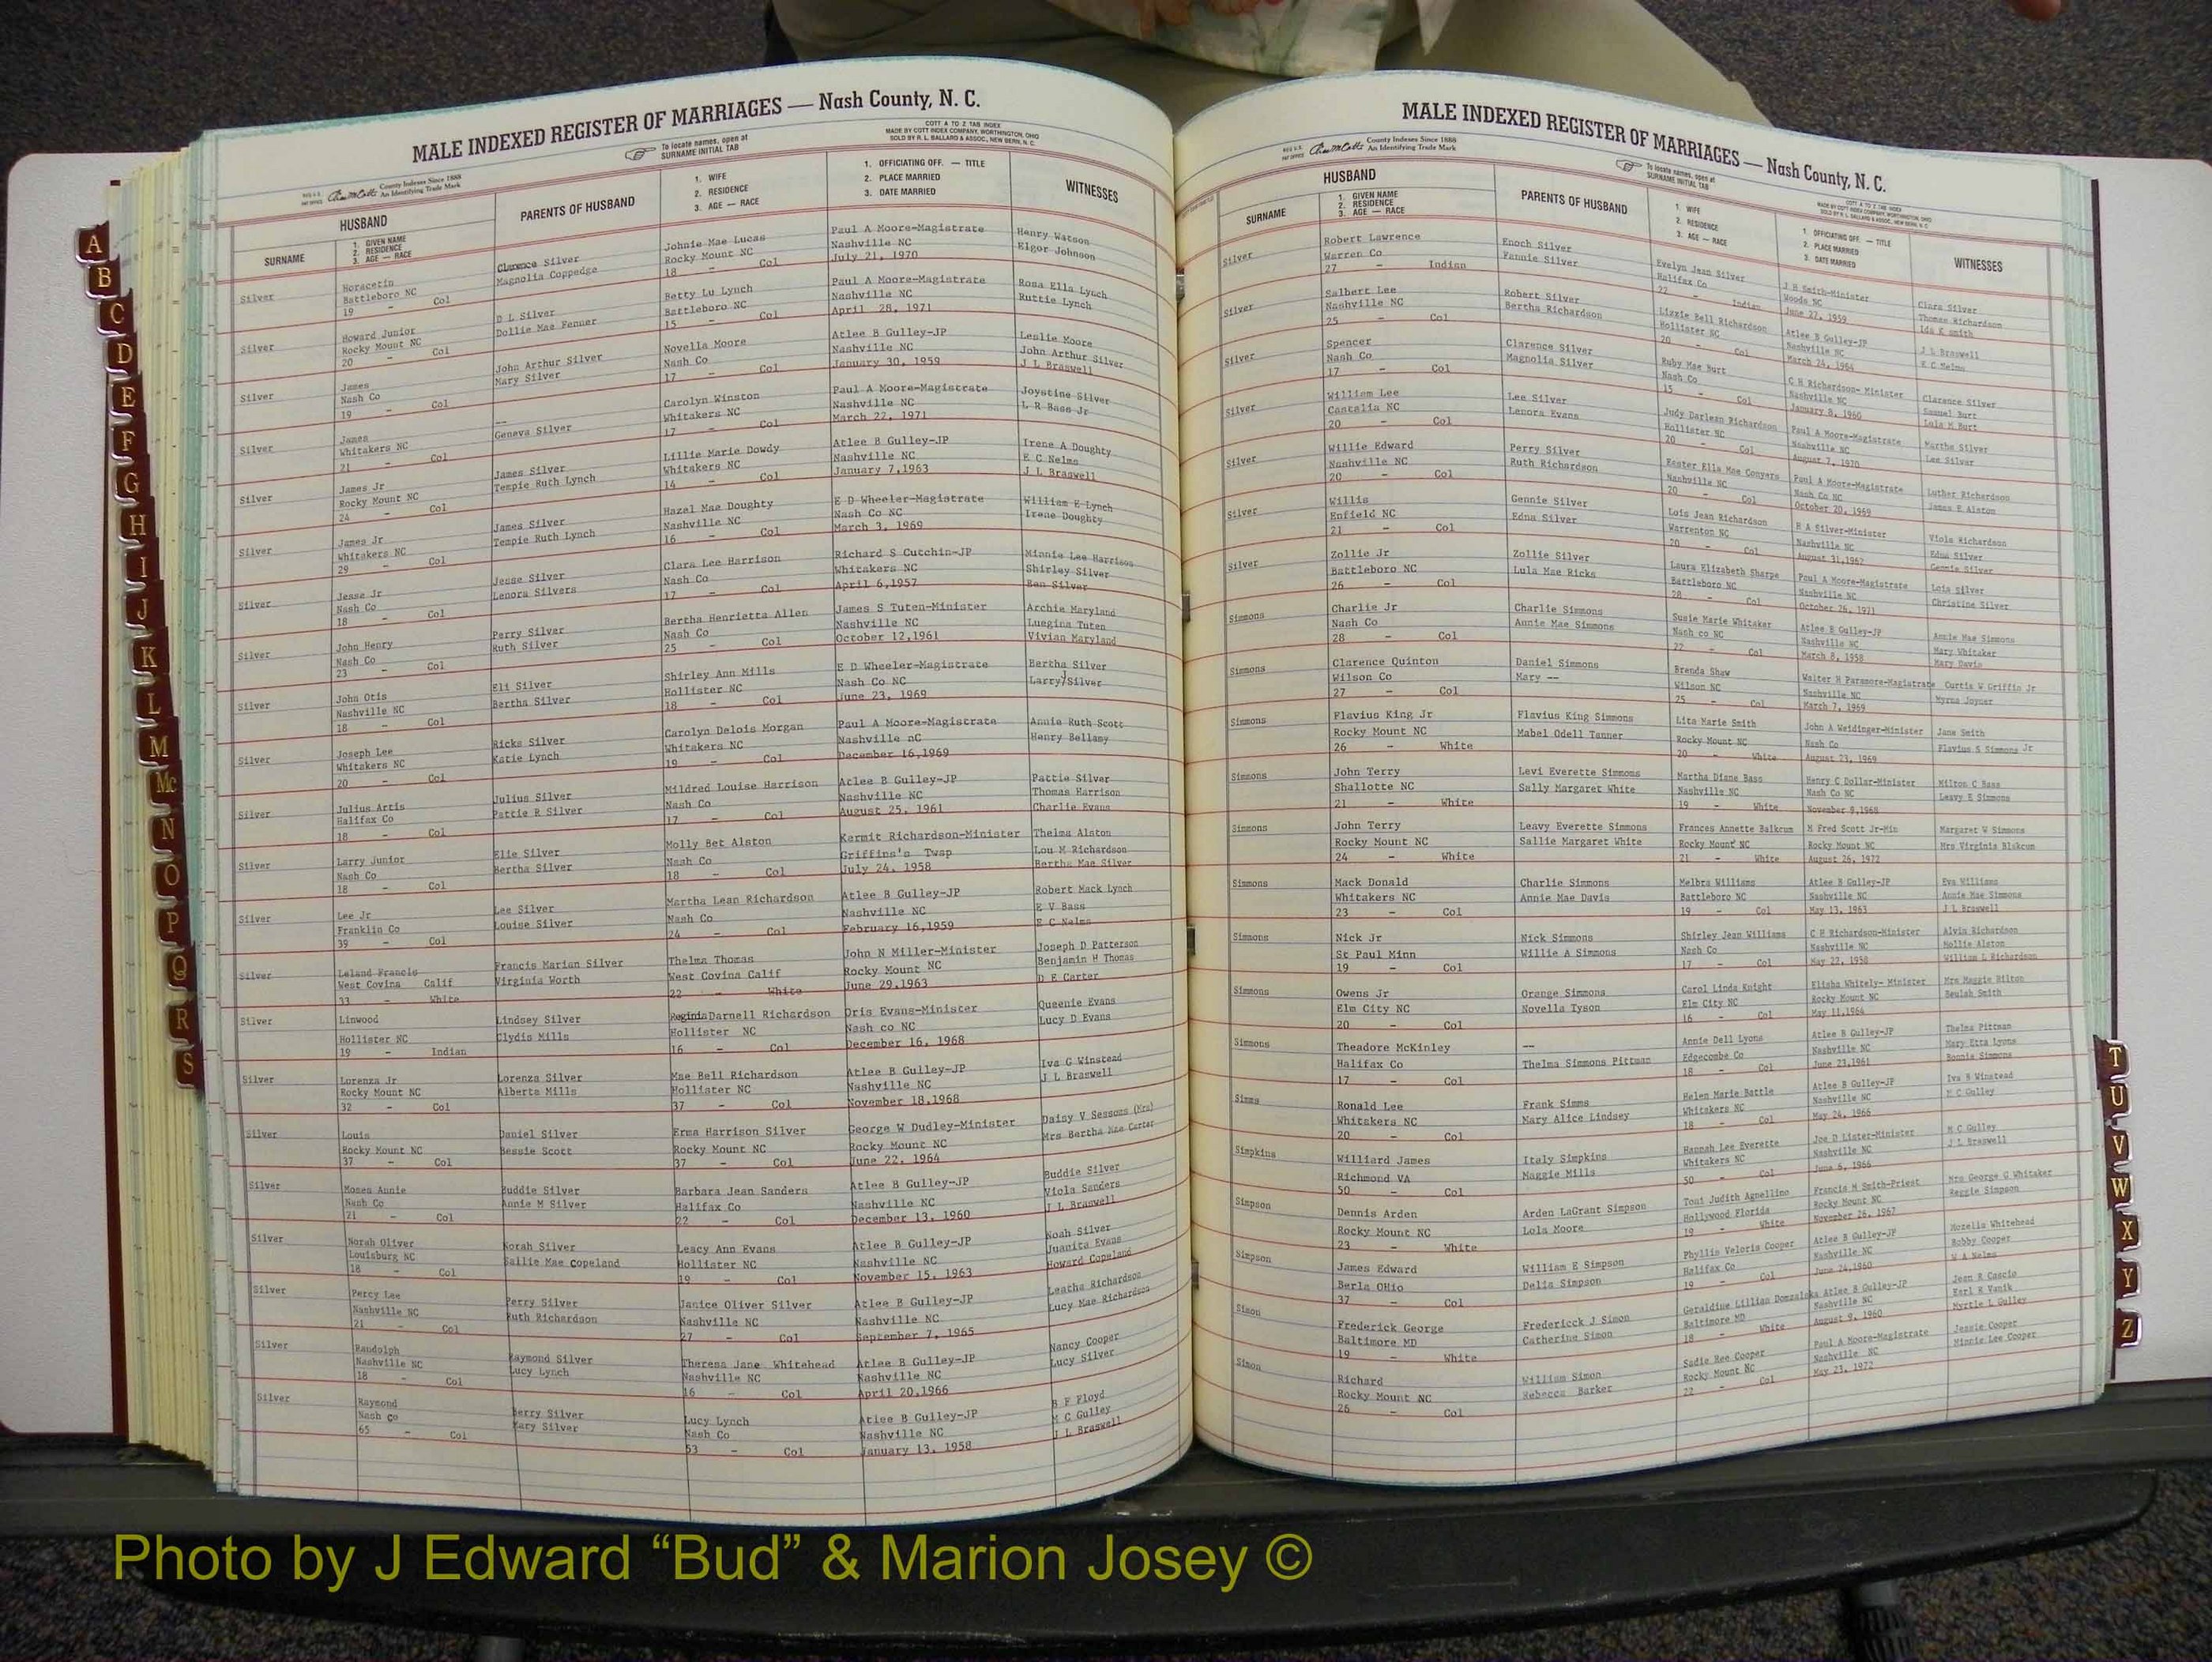 MALE INDEXED REGISTER OF MARRIAGES — Nash County, N. C.
To locate names, open at
SURNAME INITIAL TAB
COTT A TO Z TAB INDEX
MADE BY COTT INDEX COMPANY, WORTHINGTON, OHIO
SOLD BY R. L. BALLARD & ASSOC., NEW BERN, N. C.
County Indexes Since 1888
An Identifying Trade Mark
HUSBAND
SURNAME
1. GIVEN NAME
2. RESIDENCE
3. AGE — RACE
PARENTS OF HUSBAND
1. WIFE
2. RESIDENCE
3. AGE — RACE
1. OFFICIATING OFF. — TITLE
2. PLACE MARRIED
3. DATE MARRIED
WITNESSES
Silver Horacetin Clarence Silver Johnie Mae Lucas Paul A Moore-Magistrate Henry Watson
Battleboro NC Magnolia Coppedge Rocky Mount NC Nashville NC Elgor Johnson
19 - Col 18 - Col July 21, 1970
Silver Howard Junior D L Silver Betty Lu Lynch Paul A Moore-Magistrate Rosa Ella Lynch
Rocky Mount NC Dollie Mae Fenner Battleboro NC Nashville NC Ruttie Lynch
20 - Col 15 - Col April 28, 1971
Silver James John Arthur Silver Novella Moore Atlee B Gulley-JP Leslie Moore
Nash Co Mary Silver Nash Co Nashville NC John Arthur Silver
19 - Col 17 - Col January 30, 1959 J L Braswell
Silver James -- Carolyn Winston Paul A Moore-Magistrate Joystine Silver
Whitakers NC Geneva Silver Whitakers NC Nashville NC L R Bass Jr
21 - Col 17 - Col March 22, 1971
Silver James Jr James Silver Lillie Marie Dowdy Atlee B Gulley-JP Irene A Doughty
Rocky Mount NC Tempie Ruth Lynch Whitakers NC Nashville NC E C Nelms
24 - Col 14 - Col January 7,1963 J L Braswell
Silver James Jr James Silver Hazel Mae Doughty E D Wheeler-Magistrate William E Lynch
Whitakers NC Tempie Ruth Lynch Nashville NC Nash Co NC Irene Doughty
29 - Col 16 - Col March 3, 1969
Silver Jesse Jr Jesse Silver Clara Lee Harrison Richard S Cutchin-JP Minnie Lee Harrison
Nash Co Lenora Silvers Nash Co Whitakers NC Shirley Silver
18 - Col 17 - Col April 6,1957 Ben Silver
Silver John Henry Perry Silver Bertha Henrietta Allen James S Tuten-Minister Archie Maryland
Nash Co Ruth Silver Nash Co Nashville NC Luegina Tuten
23 - Col 25 - Col October 12,1961 Vivian Maryland
Silver John Otis Eli Silver Shirley Ann Mills E D Wheeler-Magistrate Bertha Silver
Nashville NC Bertha Silver Hollister NC Nash Co NC Larry Silver
18 - Col 18 - Col June 23, 1969
Silver Joseph Lee Ricks Silver Carolyn Delois Morgan Paul A Moore-Magistrate Annie Ruth Scott
Whitakers NC Katie Lynch Whitakers NC Nashville nC Henry Bellamy
20 - Col 19 - Col December 16,1969
Silver Julius Artis Julius Silver Mildred Louise Harrison Atlee B Gulley-JP Pattie Silver
Halifax Co Pattie R Silver Nash Co Nashville NC Thomas Harrison
18 - Col 17 - Col August 25, 1961 Charlie Evans
Silver Larry Junior Elie Silver Molly Bet Alston Kermit Richardson-Minister Thelma Alston
Nash Co Bertha Silver Nash Co Griffins's Twsp Lou M Richardson
18 - Col 18 - Col July 24, 1958 Bertha Mae Silver
Silver Lee Jr Lee Silver Martha Lean Richardson Atlee B Gulley-JP Robert Mack Lynch
Franklin Co Louise Silver Nash Co Nashville NC E V Bass
39 - Col 24 - Col February 16,1959 E C Nelms
Silver Leland Francis Francis Marian Silver Thelma Thomas John N Miller-Minister Joseph D Patterson
West Covina Calif Virginia Worth West Covina Calif Rocky Mount NC Benjamin H Thomas
33 - White 22 - White June 29,1963 D E Carter
Silver Linwood Lindsey Silver Regina Darnell Richardson Oris Evans-Minister Queenie Evans
Hollister NC Clydis Mills Hollister NC Nash co NC Lucy D Evans
19 - Indian 16 - Col December 16, 1968
Silver Lorenza Jr Lorenza Silver Mae Bell Richardson Atlee B Gulley-JP Iva G Winstead
Rocky Mount NC Alberta Mills Hollister NC Nashville NC J L Braswell
32 - Col 37 - Col November 18,1968
Silver Louis Daniel Silver Erma Harrison Silver George W Dudley-Minister Daisy V Sessoms (Mrs)
Rocky Mount NC Bessie Scott Rocky Mount NC Rocky Mount NC Mrs Bertha Mae Carter
37 - Col 37 - Col June 22, 1964
Silver Moses Annie Buddie Silver Barbara Jean Sanders Atlee B Gulley-JP Buddie Silver
Nash Co Annie M Silver Halifax Co Nashville NC Viola Sanders
21 - Col 22 - Col December 13, 1960 J L Braswell
Silver Norah Oliver Norah Silver Leacy Ann Evans Atlee B Gulley-JP Noah Silver
Louisburg NC Sallie Mae Copeland Hollister NC Nashville NC Juanita Evans
18 - Col 19 - Col November 15, 1963 Howard Copeland
Silver Percy Lee Perry Silver Janice Oliver Silver Atlee B Gulley-JP Leatha Richardson
Nashville NC Ruth Richardson Nashville NC Nashville NC Lucy Mae Richardson
21 - Col 27 - Col September 7, 1965
Silver Randolph Raymond Silver Theresa Jane Whitehead Atlee B Gulley-JP Nancy Cooper
Nashville NC Lucy Lynch Nashville NC Nashville NC Lucy Silver
18 - Col 16 - Col April 20,1966
Silver Raymond Berry Silver Lucy Lynch Atlee B Gulley-JP B F Floyd
Nash co Mary Silver Nash Co Nashville NC M C Gulley
65 - Col 53 - Col January 13, 1958 J L Braswell
MALE INDEXED REGISTER OF MARRIAGES — Nash County, N. C.
County Indexes Since 1888
An Identifying Trade Mark
To locate names, open at
SURNAME INITIAL TAB
COTT A TO Z TAB INDEX
MADE BY COTT INDEX COMPANY, WORTHINGTON, OHIO
SOLD BY R. L. BALLARD & ASSOC., NEW BERN, N. C.
HUSBAND
SURNAME
1. GIVEN NAME
2. RESIDENCE
3. AGE — RACE
PARENTS OF HUSBAND
1. WIFE
2. RESIDENCE
3. AGE — RACE
1. OFFICIATING OFF. — TITLE
2. PLACE MARRIED
3. DATE MARRIED
WITNESSES
Silver Robert Lawrence Enoch Silver Evelyn Jean Silver J H Smith-Minister Clara Silver
Warren Co Fannie Silver Halifax Co Woods NC Thomas Richardson
27 - Indian 22 - Indian June 27, 1959 Ida K smith
Silver Salbert Lee Robert Silver Lizzie Bell Richardson Atlee B Gulley-JP J L Braswell
Nashville NC Bertha Richardson Hollister NC Nashville NC E C Nelms
25 - Col 20 - Col March 24, 1964
Silver Spencer Clarence Silver Ruby Mae Burt C H Richardson- Minister Clarence Silver
Nash Co Magnolia Silver Nash Co Nashville NC Samuel Burt
17 - Col 15 - Col January 8, 1960 Lula M Burt
Silver William Lee Lee Silver Judy Darlean Richardson Paul A Moore-Magistrate Martha Silver
Castalia NC Lenora Evans Hollister NC Nashville NC Lee Silver
20 - Col 20 - Col August 7, 1970
Silver Willie Edward Perry Silver Easter Ella Mae Conyers Paul A Moore-Magistrate Luther Richardson
Nashville NC Ruth Richardson Nashville NC Nash Co NC James E Alston
20 - Col 20 - Col October 20, 1969
Silver Willis Gennie Silver Lois Jean Richardson H A Silver-Minister Viola Richardson
Enfield NC Edna Silver Warrenton NC Nashville NC Edna Silver
21 - Col 20 - Col August 31,1962 Gennie Silver
Silver Zollie Jr Zollie Silver Laura Elizabeth Sharpe Paul A Moore-Magistrate Lois Silver
Battleboro NC Lula Mae Ricks Battleboro NC Nashville NC Christine Silver
26 - Col 28 - Col October 26, 1971
Simmons Charlie Jr Charlie Simmons Susie Marie Whitaker Atlee B Gulley-JP Annie Mae Simmons
Nash Co Annie Mae Simmons Nash co NC Nashville NC Mary Whitaker
28 - Col 22 - Col March 8, 1958 Mary Davis
Simmons Clarence Quinton Daniel Simmons Brenda Shaw Walter H Paramore-Magistrate Curtis W Griffin Jr
Wilson Co Mary -- Wilson NC Nashville NC Myrna Joyner
27 - Col 25 - Col March 7, 1969
Simmons Flavius King Jr Flavius King Simmons Lita Marie Smith John A Weidinger-Minister Jane Smith
Rocky Mount NC Mabel Odell Tanner Rocky Mount NC Nash Co Flavius S Simmons Jr
26 - White 20 - White August 23, 1969
Simmons John Terry Levi Everette Simmons Martha Diane Bass Henry C Dollar-Minister Milton C Bass
Shallotte NC Sally Margaret White Nashville NC Nash Co NC Leavy E Simmons
21 - White 19 - White November 9,1968
Simmons John Terry Leavy Everette Simmons Frances Annette Balkcum M Fred Scott Jr-Min Margaret W Simmons
Rocky Mount NC Sallie Margaret White Rocky Mount NC Rocky Mount NC Mrs Virginia Blakcum
24 - White 21 - White August 26, 1972
Simmons Mack Donald Charlie Simmons Melbra Williams Atlee B Gulley-JP Eva Williams
Whitakers NC Annie Mae Davis Battleboro NC Nashville NC Annie Mae Simmons
23 - Col 19 - Col May 13, 1963 J L Braswell
Simmons Nick Jr Nick Simmons Shirley Jean Williams C H Richardson-Minister Alvin Richardson
St Paul Minn Willie A Simmons Nash Co Nashville NC Mollie Alston
19 - Col 17 - Col May 22, 1958 William L Richardson
Simmons Owens Jr Orange Simmons Carol Linda Knight Elisha Whitely- Minister Mrs Maggie Hilton
Elm City NC Novella Tyson Elm City NC Rocky Mount NC Beulah Smith
20 - Col 16 - Col May 11,1964
Simmons Theadore McKinley -- Annie Dell Lyons Atlee B Gulley-JP Thelma Pittman
Halifax Co Thelma Simmons Pittman Edgecombe Co Nashville NC Mary Etta Lyons
17 - Col 18 - Col June 23,1961 Bonnie Simmons
Simms Ronald Lee Frank Simms Helen Marie Battle Atlee B Gulley-JP Iva B Winstead
Whitakers NC Mary Alice Lindsey Whitakers NC Nashville NC M C Gulley
20 - Col 18 - Col May 24, 1966
Simpkins Williard James Italy Simpkins Hannah Lee Everette Joe D Lister-Minister M C Gulley
Richmond VA Maggie Mills Whitakers NC Nashville NC J L Braswell
50 - Col 50 - Col June 6, 1966
Simpson Dennis Arden Arden LaGrant Simpson Toni Judith Agnellino Francis M Smith-Priest Mrs George G Whitaker
Rocky Mount NC Lola Moore Hollywood Florida Rocky Mount NC Reggie Simpson
23 - White 19 - White November 26, 1967
Simpson James Edward William E Simpson Phyllis Veloris Cooper Atlee B Gulley-JP Mozelia Whitehead
Berla OHio Delia Simpson Halifax Co Nashville NC Bobby Cooper
37 - Col 19 - Col June 24,1960 W A Nelms
Simon Frederick George Fredericck J Simon Geraldine Lillian Atlee B Gulley-JP Jean R Cascio
Baltimore MD Catherine Simon Baltimore MD Nashville NC Earl R Vanik
19 - White 18 - White August 9, 1960 Myrtle L Gulley
Simon Richard William Simon Sadie Ree Cooper Paul A Moore-Magistrate Jessie Cooper
Rocky Mount NC Rebecca Barker Rocky Mount NC Nashville NC Minnie Lee Cooper
26 - Col 22 - Col May 23, 1972
A
B
C
D
E
F
G
H
I
J
K
L
M
Mc
N
O
P
Q
R
S
T
U
V
W
X
Y
Z
Photo by J Edward “Bud” & Marion Josey ©